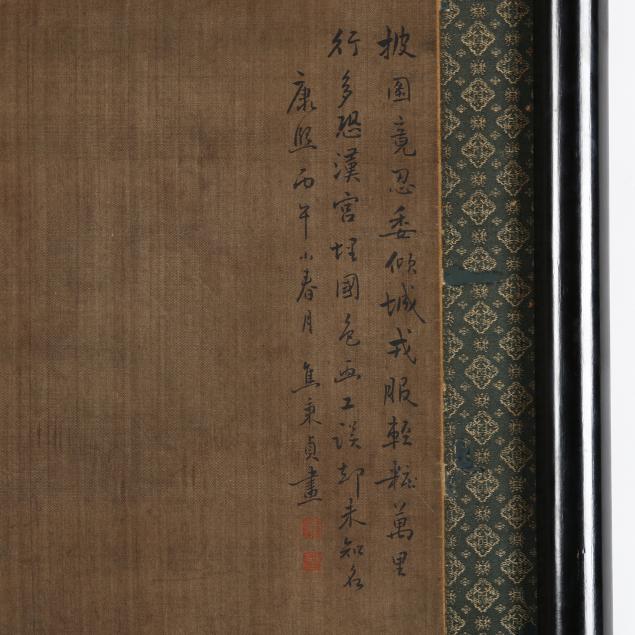 披圖竟忍委傾城戎服輕粧萬里
行多恐漢宮埋國色画工誤却未知名
康熙丙午小春月 焦秉貞畫